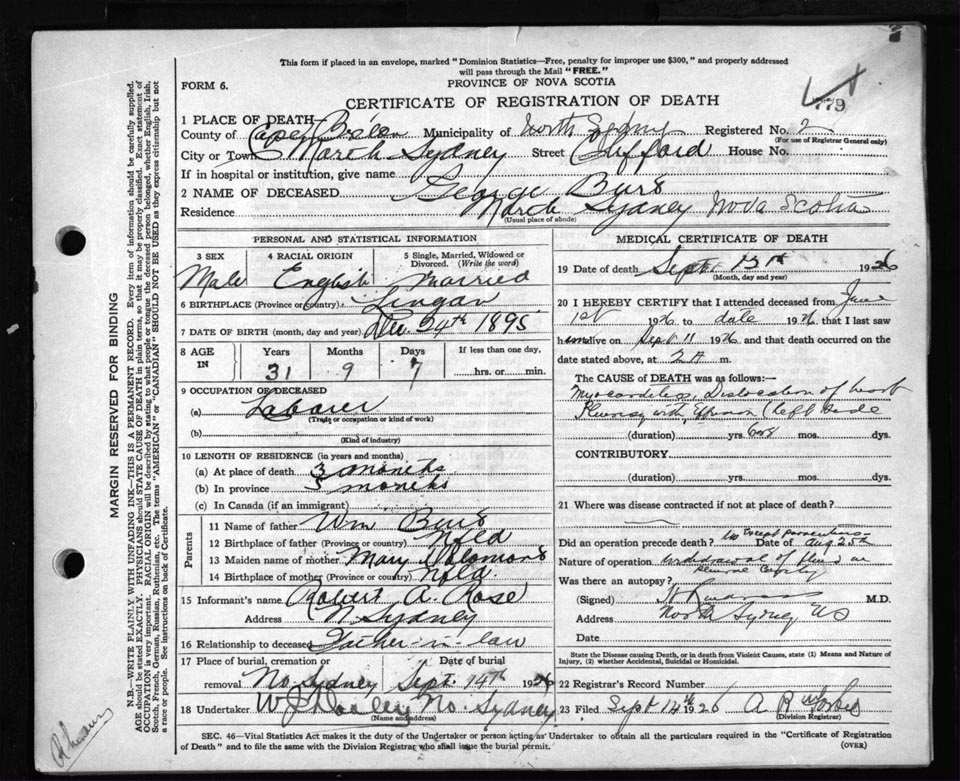 This form if placed in an envelope, marked "Dominion Statistics—Free, penalty for improper use $300," and properly addressed
will pass through the Mail "FREE."
FORM 6.
PROVINCE OF NOVA SCOTIA
779
CERTIFICATE OF REGISTRATION OF DEATH
1 PLACE OF DEATH—
County of Cape Breton Municipality of North Sydney Registered No. 2
(For use of Registrar General only)
City or Town North Sydney Street Clifford House No.
If in hospital or institution, give name
2 NAME OF DECEASED George
Residence North Sydney Nova Scotia
(Usual place of abode)
PERSONAL AND STATISTICAL INFORMATION
3 SEX 4 RACIAL ORIGIN 5 Single, Married, Widowed or Divorced. (Write the word)
Male English Married
6 BIRTHPLACE (Province or Country) Lingan
7 DATE OF BIRTH (month, day and year) Dec. 24th 1895
8 AGE IN Years Months Days If less than one day,
31 9 7 hrs. or min.
9 OCCUPATION OF DECEASED
(a) Laborer
(Trade or occupation or kind of work)
(b)
(Kind of industry)
10 LENGTH OF RESIDENCE (in years and months)
(a) At place of death 3 months
(b) In province 5 months
(c) In Canada (if an immigrant)
Parents
11 Name of father Wm
12 Birthplace of father (Province or country) Nfld
13 Maiden name of mother Mary Solomons
14 Birthplace of mother (Province or country) Nfld.
15 Informant's name Robert A. Rose
Address N Sydney
16 Relationship to deceased Father-in-law
17 Place of burial, cremation or removal Date of burial
No. Sydney Sept. 14th 1926
18 Undertaker No. Sydney
(Name and address)
MEDICAL CERTIFICATE OF DEATH
19 Date of death Sept. 1926
(Month, day and year)
20 I HEREBY CERTIFY that I attended deceased from June
1st 1926 to date 1926, that I last saw
him alive on Sept 11 1926, and that death occurred on the
date stated above, at 2 A m.
The CAUSE of DEATH was as follows:—
Myocarditis, Dislocation of heart
Pleurisy with (left side
(duration) yrs. mos. dys.
CONTRIBUTORY
(duration) yrs. mos. dys.
21 Where was disease contracted if not at place of death?
Did an operation precede death? No Except Date of Aug 25th
Nature of operation withdrawal of
Was there an autopsy?
(Signed) M.D.
Address North Sydney
Date
State the Disease causing Death, or in death from Violent Causes, state (1) Means and Nature of
Injury, (2) whether Accidental, Suicidal or Homicidal.
22 Registrar's Record Number
23 Filed Sept 14th 1926 A
(Division Registrar)
SEC. 46—Vital Statistics Act makes it the duty of the Undertaker or person acting as Undertaker to obtain all the particulars required in the "Certificate of Registration
of Death" and to file the same with the Division Registrar who shall issue the burial permit.
(OVER)
MARGIN RESERVED FOR BINDING
N.B.—WRITE PLAINLY WITH UNFADING INK—THIS IS A PERMANENT RECORD. Every item of information should be carefully supplied.
AGE should be stated EXACTLY. PHYSICIANS should STATE CAUSE OF DEATH in plain terms, so that it may be properly classified. Exact statement of
OCCUPATION is very important. RACIAL ORIGIN will be described by stating to what people or tongue the deceased person belonged, whether English, Irish,
Scotch, French, German, Russian, Ruthenian, etc. The terms "AMERICAN" or "CANADIAN" SHOULD NOT BE USED as they express citizenship but not
a race or people. See instructions on back of Certificate.